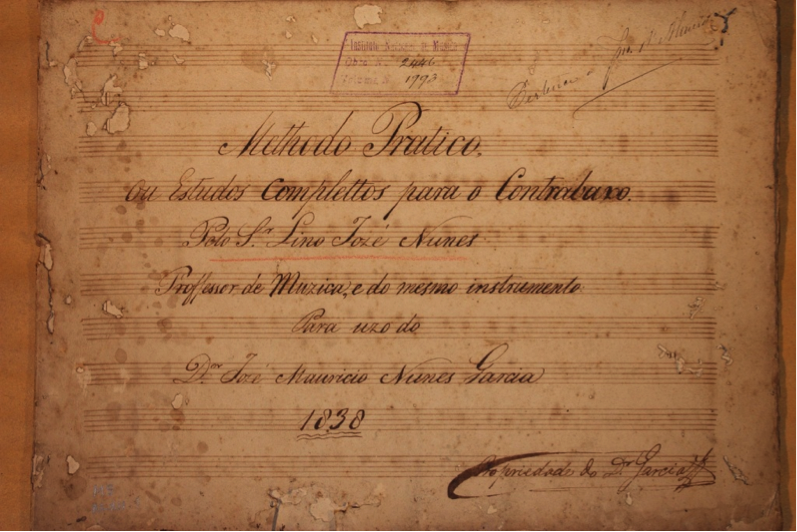 Instituto Nacional de Musica
Obra N. 2446
Volume N. 1793
Methodo Pratico.
ou Estudos Complettos para o Contrabaxo.
Pelo S.r Lino Jozé Nunes
Proffesor de Muzica, e do mesmo instrumento.
Para uzo do
D.or Jozé Mauricio Nunes Garcia
1838
Propriedade do Dr Garcia